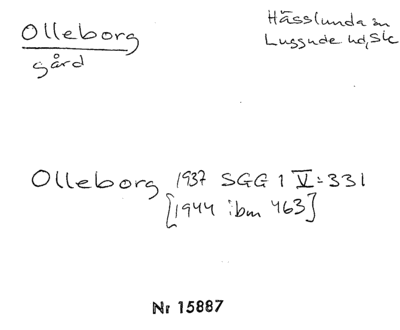 Olleborg
gård
Hässlunda sn
Luggude hd, Sk
Olleborg 1937 SGG 1 V:331
[1944 ibm 463]
Nr 15887